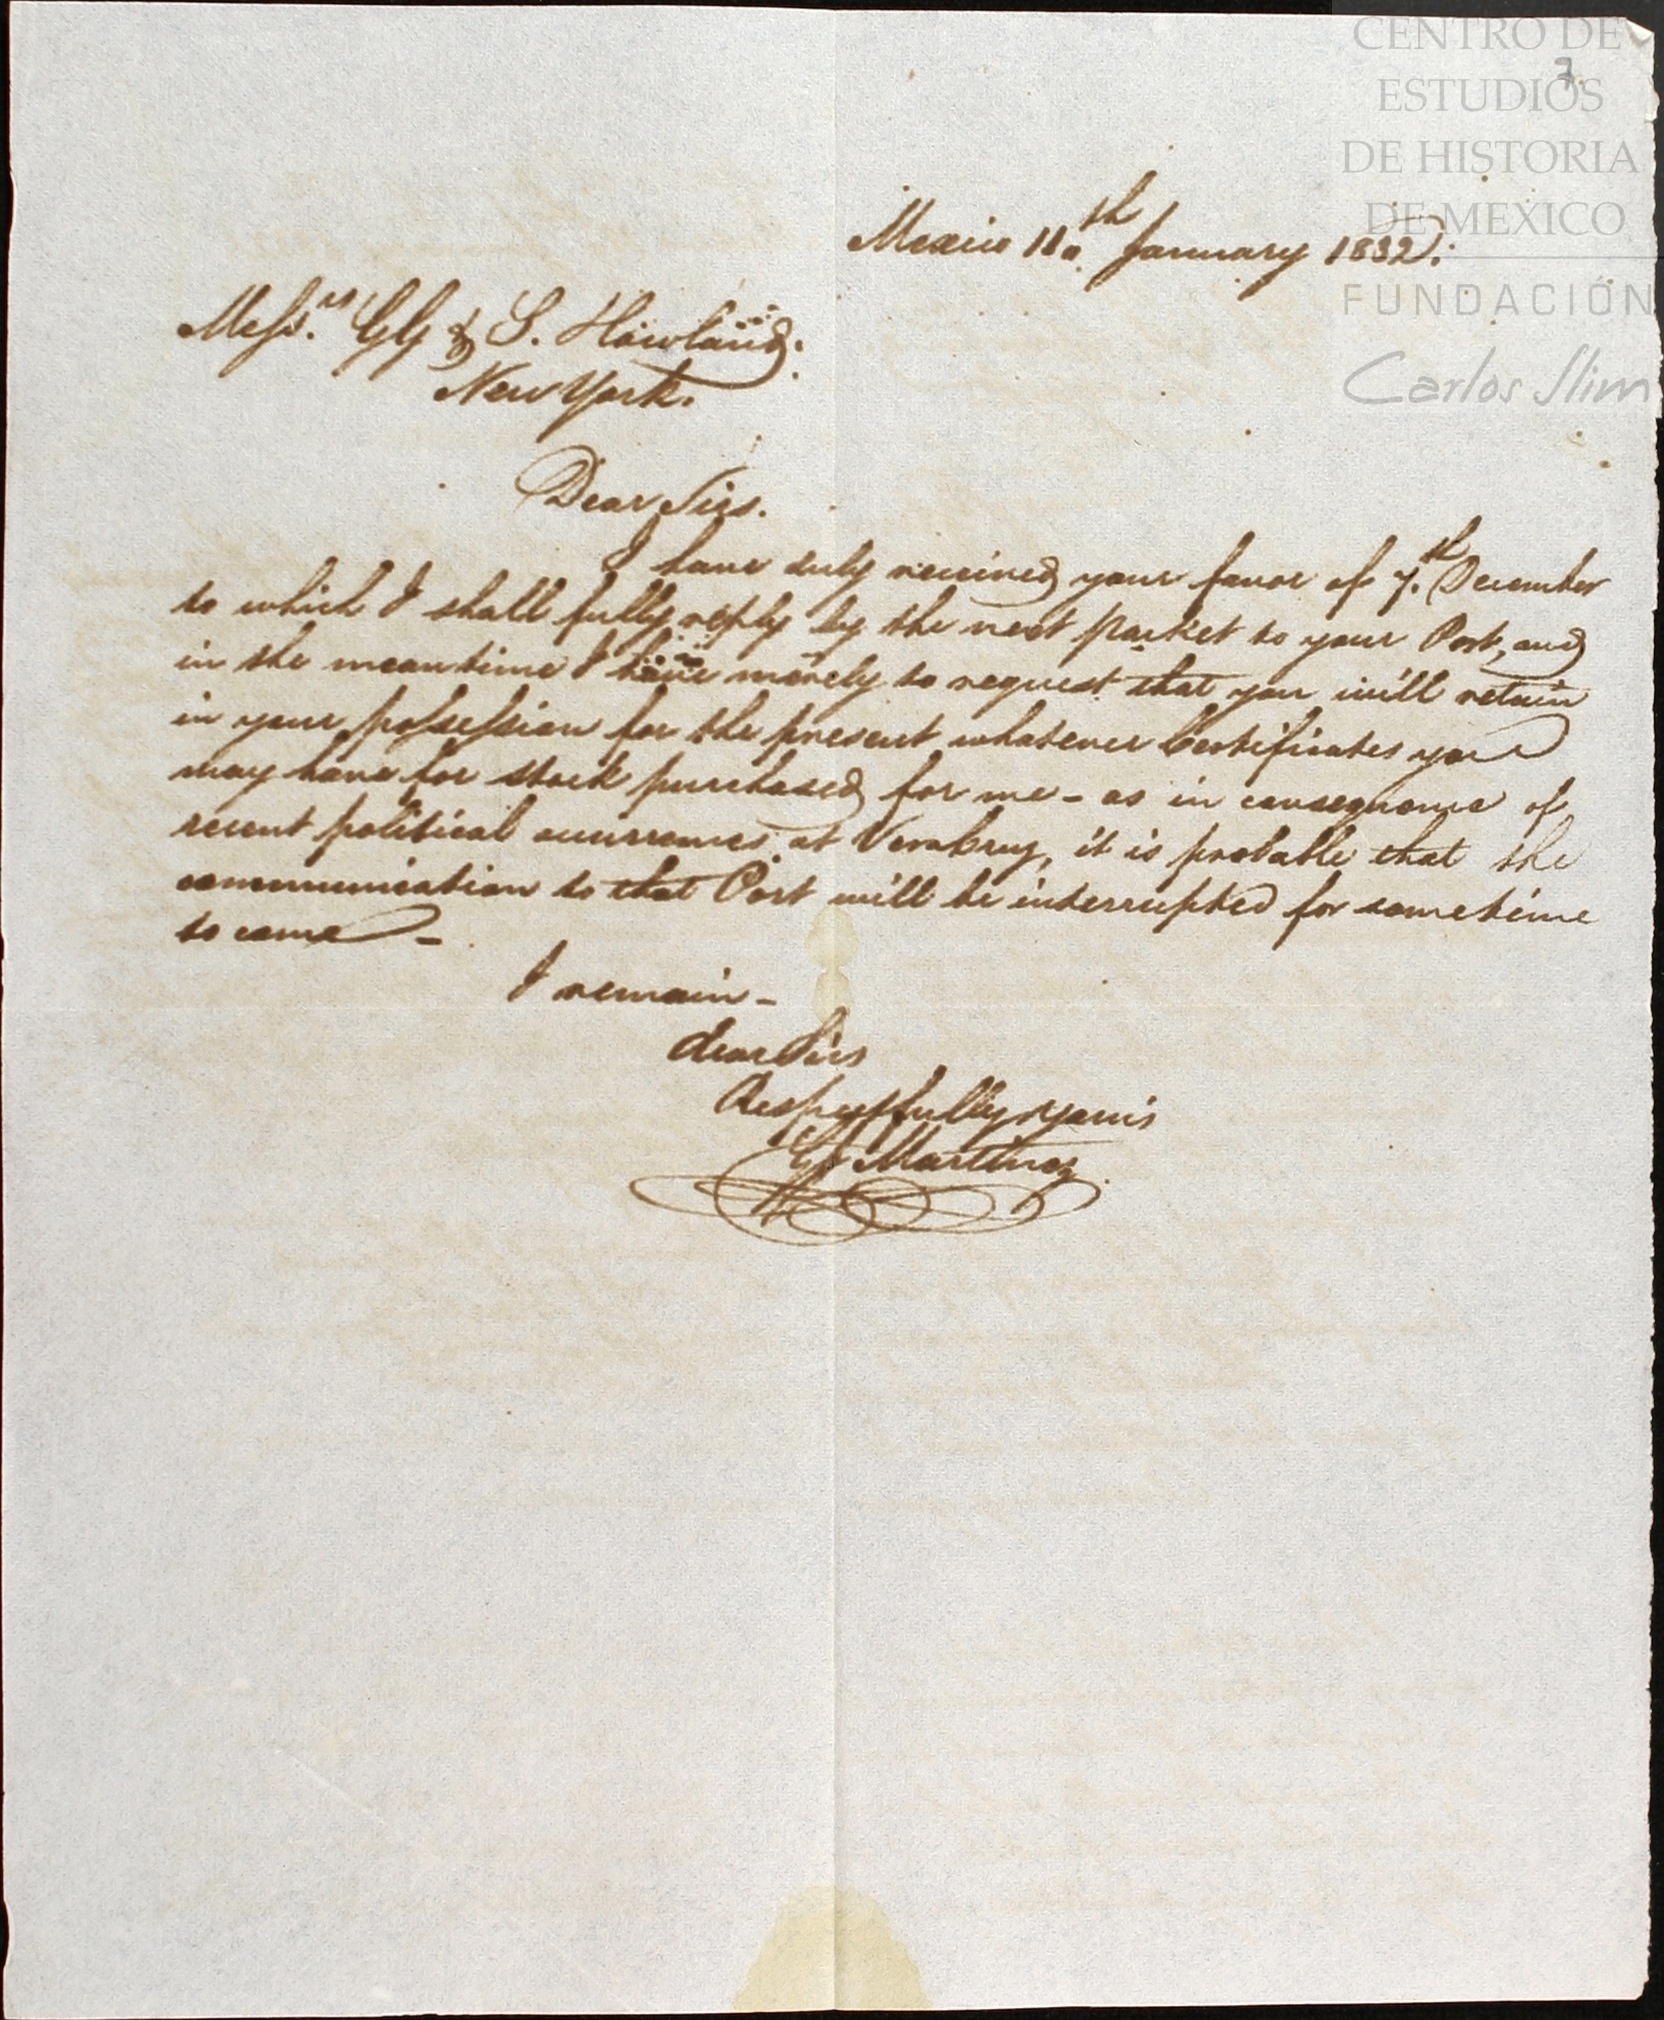 CENTRO DE
ESTUDIOS
DE HISTORIA
DE MEXICO
FUNDACIÓN
Carlos Slim
7.
Mexico 11th January 1832.
Messrs. GG & S. Howland.
New York.
Dear Sirs.
I have duly received your favor of 7th December
to which I shall fully reply by the next packet to your Port, and
in the meantime I have merely to request that you will retain
in your possession for the present whatever Certificates you
may have for stock purchased for me - as in consequence of
recent political occurrences at Verakruz, it is probable that the
communication to that Port will be interrupted for sometime
to come -
I remain -
dear Sirs
Respectfully yours
Martinez